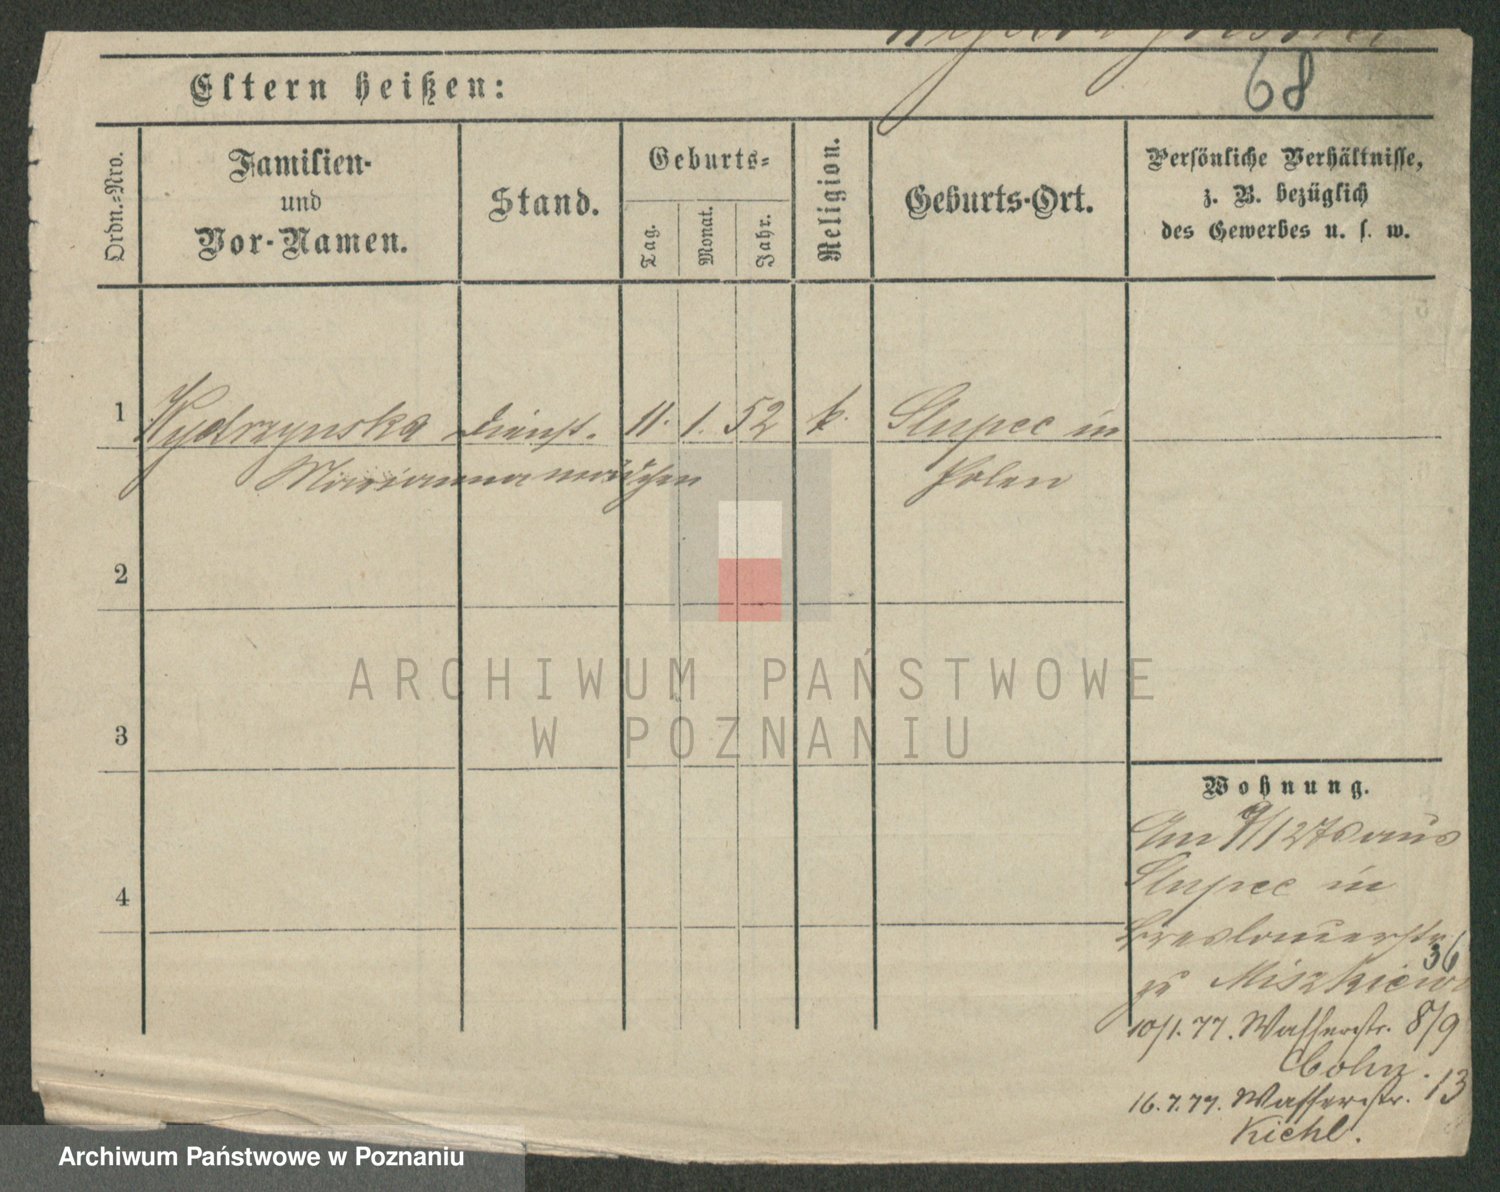 68
Eltern heißen:
Ordn.-Nro.
Familien-
und
Vor-Namen.
Stand.
Geburts-
Tag.
Monat.
Jahr.
Religion.
Geburts-Ort.
Persönliche Verhältnisse,
z. B. bezüglich
des Gewerbes u. s. w.
1 Wydrzynska Dienst- 11. 1. 52 k. Slupce in
Marianna mädchen Polen
2
3
4
ARCHIWUM PAŃSTWOWE
W POZNANIU
Wohnung.
Am 9/12 76 aus
Slupce in
Breslauerstr.
36
zu Miszkiewi
10/1. 77. Wasserstr. 8/9
Cohn.
16.7.77. Wasserstr. 13
Kiehl.
Archiwum Państwowe w Poznaniu